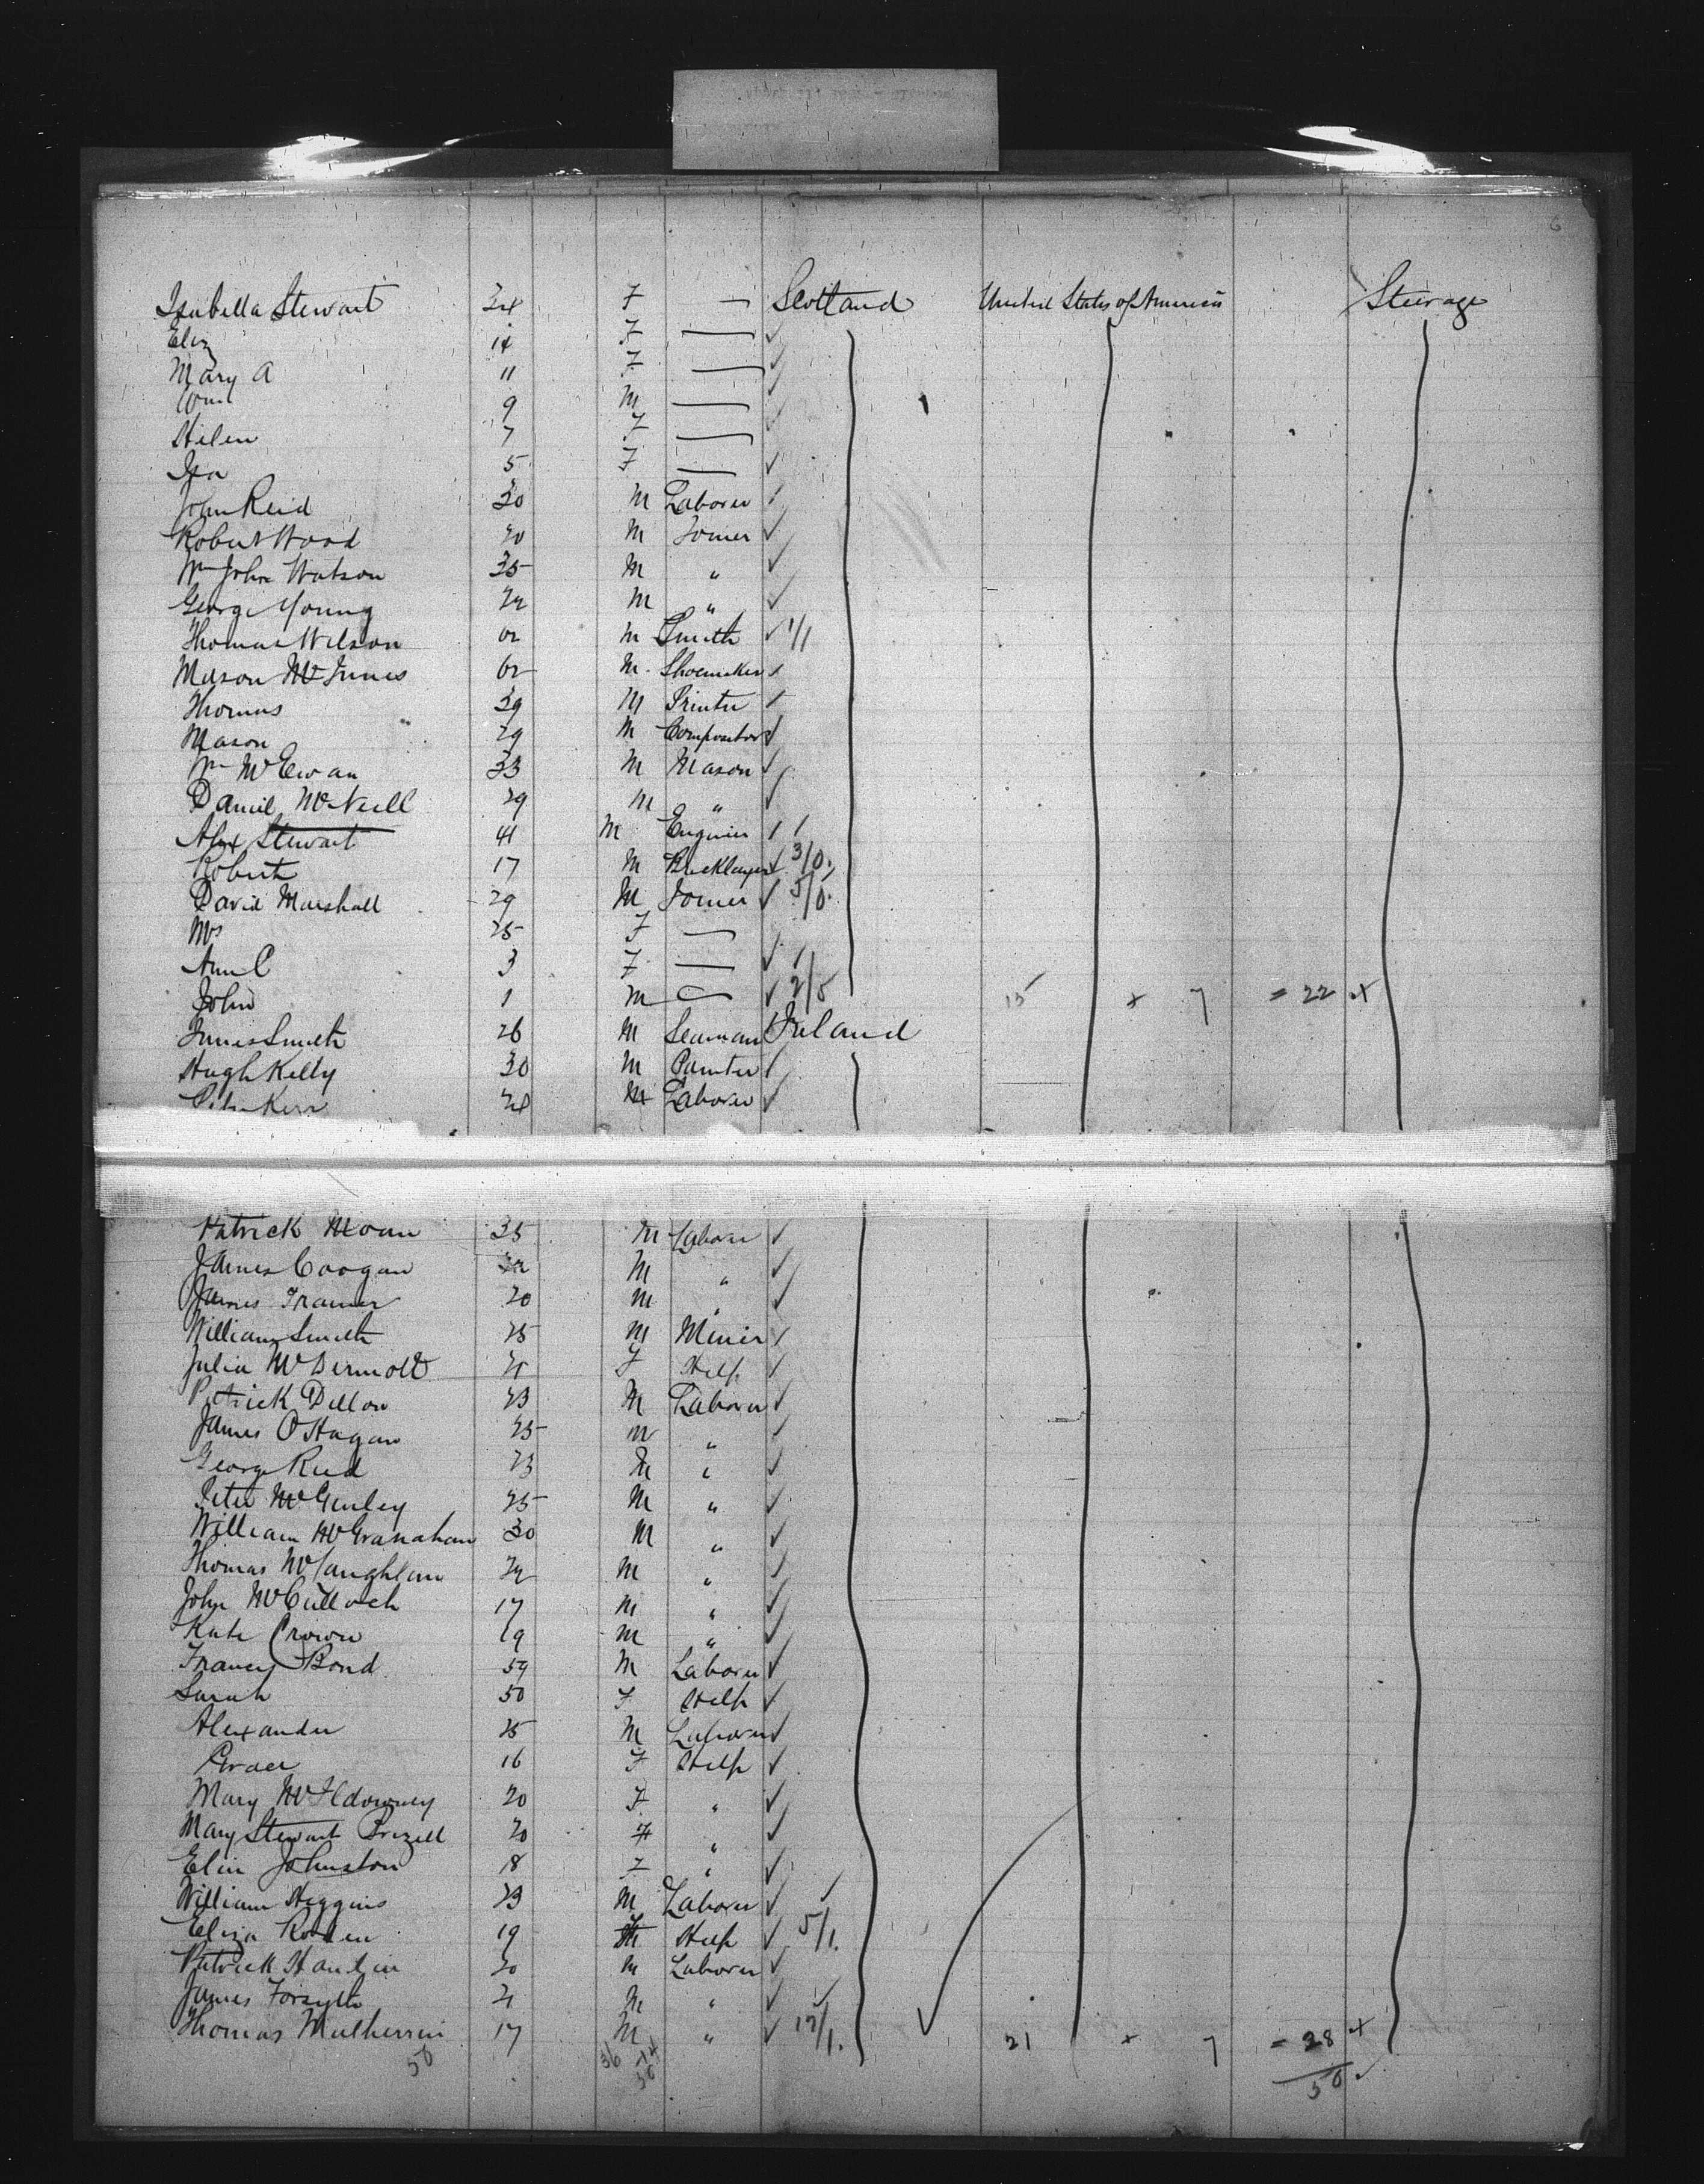 6
Isabella Stewart 34 F — Scotland United States of America Steerage
Eliz 14 F —
Mary A 11 F —
Wm 9 M —
Helen 7 F —
Isa 5 F —
John Reid 30 M Laborer
Robert Wood 20 M Joiner
Wm John Watson 35 M "
George Young 22 M "
Thomas Wilson M Smith 1/1
Mason McInnes 62 M Shoemaker
Thomas 39 M Printer
Mason 29 M Compositor
Wm McEwan 33 M Mason
Daniel McNeill 29 M "
Alex Stewart 41 M Engineer
Robert 17 M Bricklayer 3/0
David Marshall 29 M Joiner 5/0
Mrs 25 F —
Ann C 3 F —
John 1 M — 2/5 15 + 7 = 22
James Smith 26 M Seaman Ireland
Hugh Kelly 30 M Painter
Peter Kerr 24 M Laborer
Patrick Moan 35 M Laborer
James Coogan M "
James Tramer 20 M "
William Smith 25 M Miner
Julia McDermott 21 F Help
Patrick Dillon 23 M Laborer
James O'Hagan 25 M "
George Reid 23 M "
Peter McGinley 25 M "
William McGranahan 30 M "
Thomas McLaughlin 22 M "
John McCulloch 17 M "
Kate Crown 19 M "
Francis Bond 59 M Laborer
Sarah 50 F Help
Alexander 25 M Laborer
Grace 16 F Help
Mary McIldowney 20 F "
Mary Stewart Brizell 20 F "
Elin Johnston 18 F "
William Higgins 23 M Laborer
Eliza Roden 19 F Help 5/1.
Patrick Hanlin 20 M Laborer
James Forsyth 21 M "
Thomas Mulherrin 17 M " 12/1. 21 + 7 = 28
50 36 14 50 50